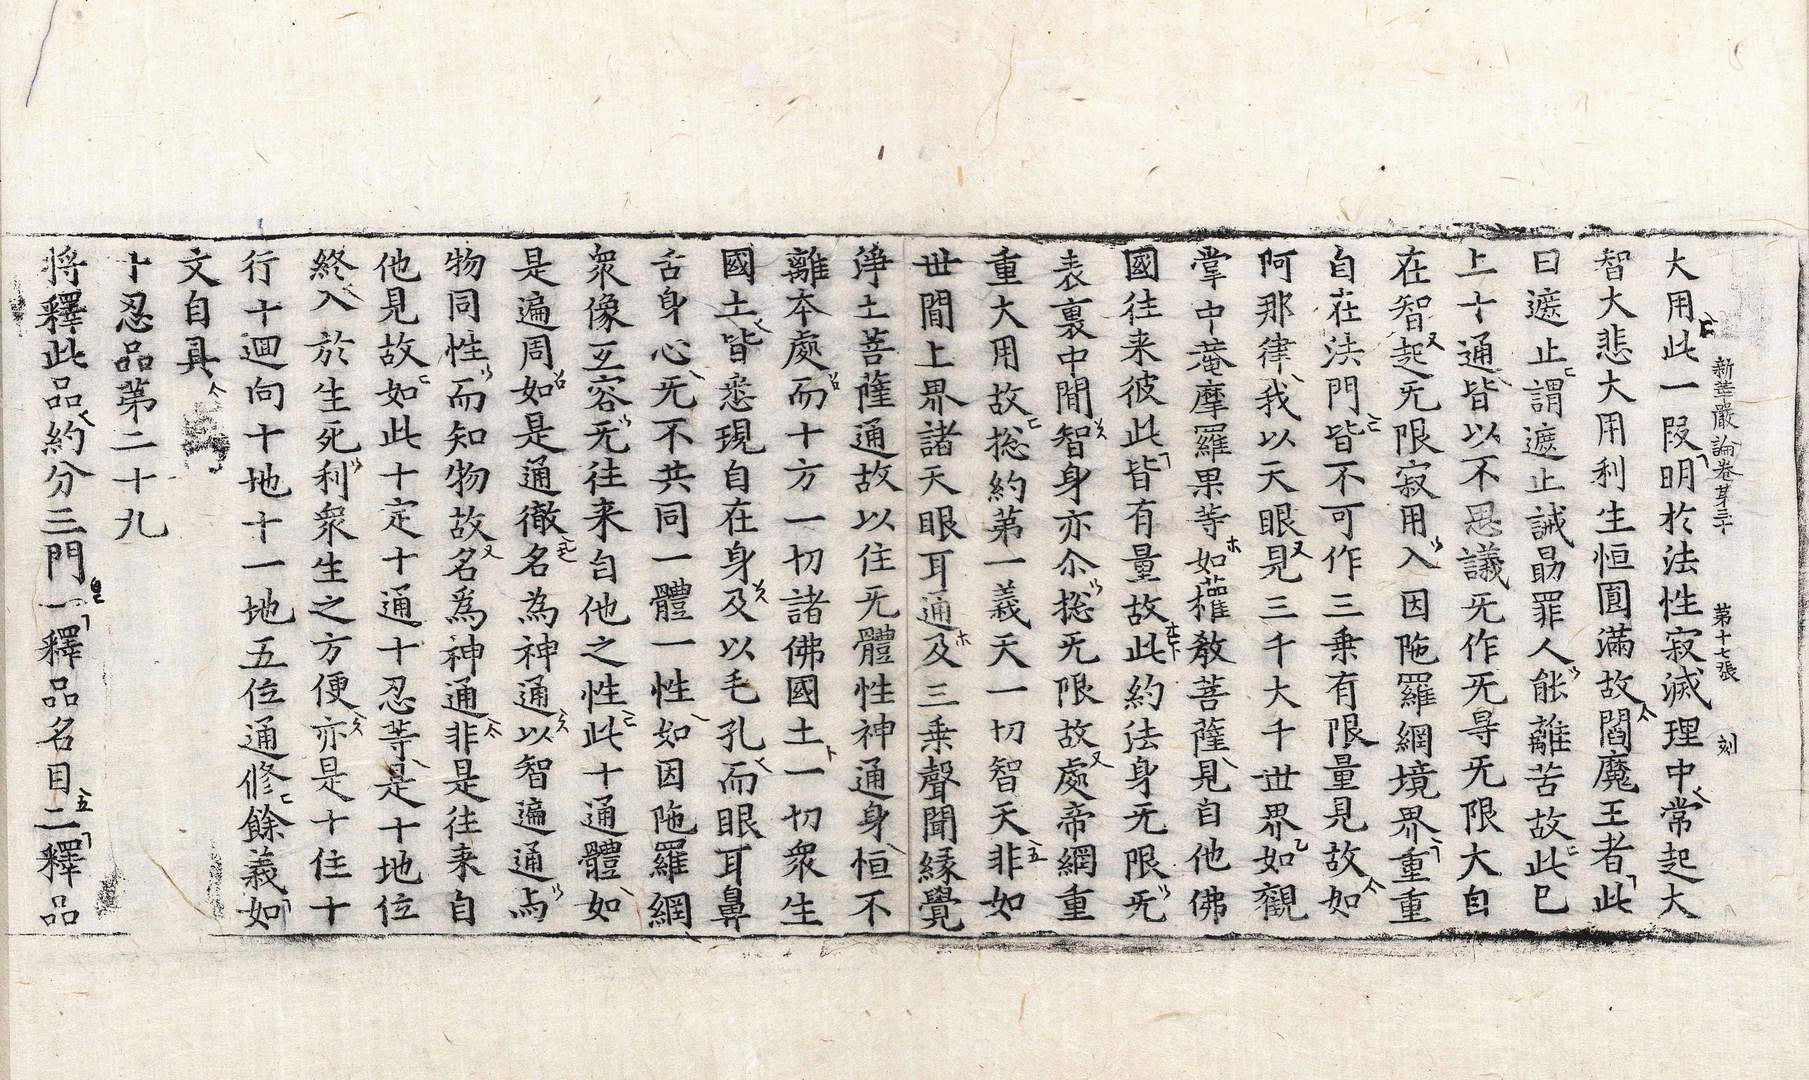 新華嚴論卷第三十 第十七張 刻
大用此一段明於法性寂滅理中常起大
智大悲大用利生恒圎滿故閻魔王者此
曰遮止謂遮止誡勗罪人能離苦故此已
上十通皆以不思議旡作旡㝵旡限大自
在智起旡限寂用入因陁羅網境界重重
自在法門皆不可作三乗有限量見故如
阿那律我以天眼見三千大千世界如觀
掌中菴摩羅果等如權敎菩薩見自他佛
國往来彼此皆有量故此約法身旡限旡
表裏中閒智身亦尒捴旡限故處帝網重
重大用故捴約第一義天一切智天非如
世間上界諸天眼耳通及三乗聲聞緣覺
淨土菩薩通故以住旡體性神通身恒不
離本處而十方一切諸佛國土一切衆生
國土皆悉現自在身及以毛孔而眼耳鼻
舌身心旡不共同一體一性如因陁羅網
衆像互容旡往来自他之性此十通體如
是遍周如是通徹名為神通以智遍通与
物同性而知物故名爲神通非是往来自
他見故如此十定十通十忍等是十地位
終入於生死利衆生之方便亦是十住十
行十迴向十地十一地五位通修餘義如
文自具
十忍品第二十九
将釋此品約分三門一釋品名目二釋品